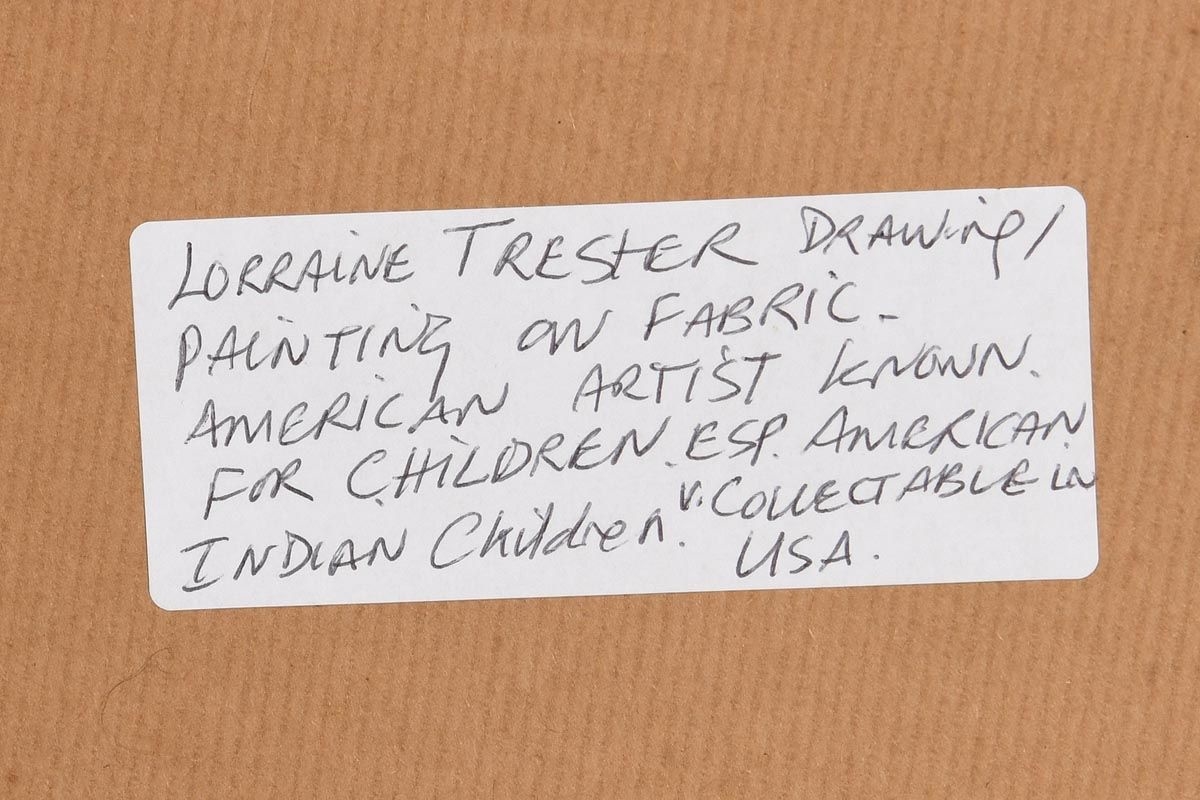 LORRAINE TRESTER DRAWING/
PAINTING ON FABRIC -
AMERICAN ARTIST KNOWN.
FOR CHILDREN. ESP. AMERICAN
INDIAN Children. V. COLLECTABLE IN
USA.